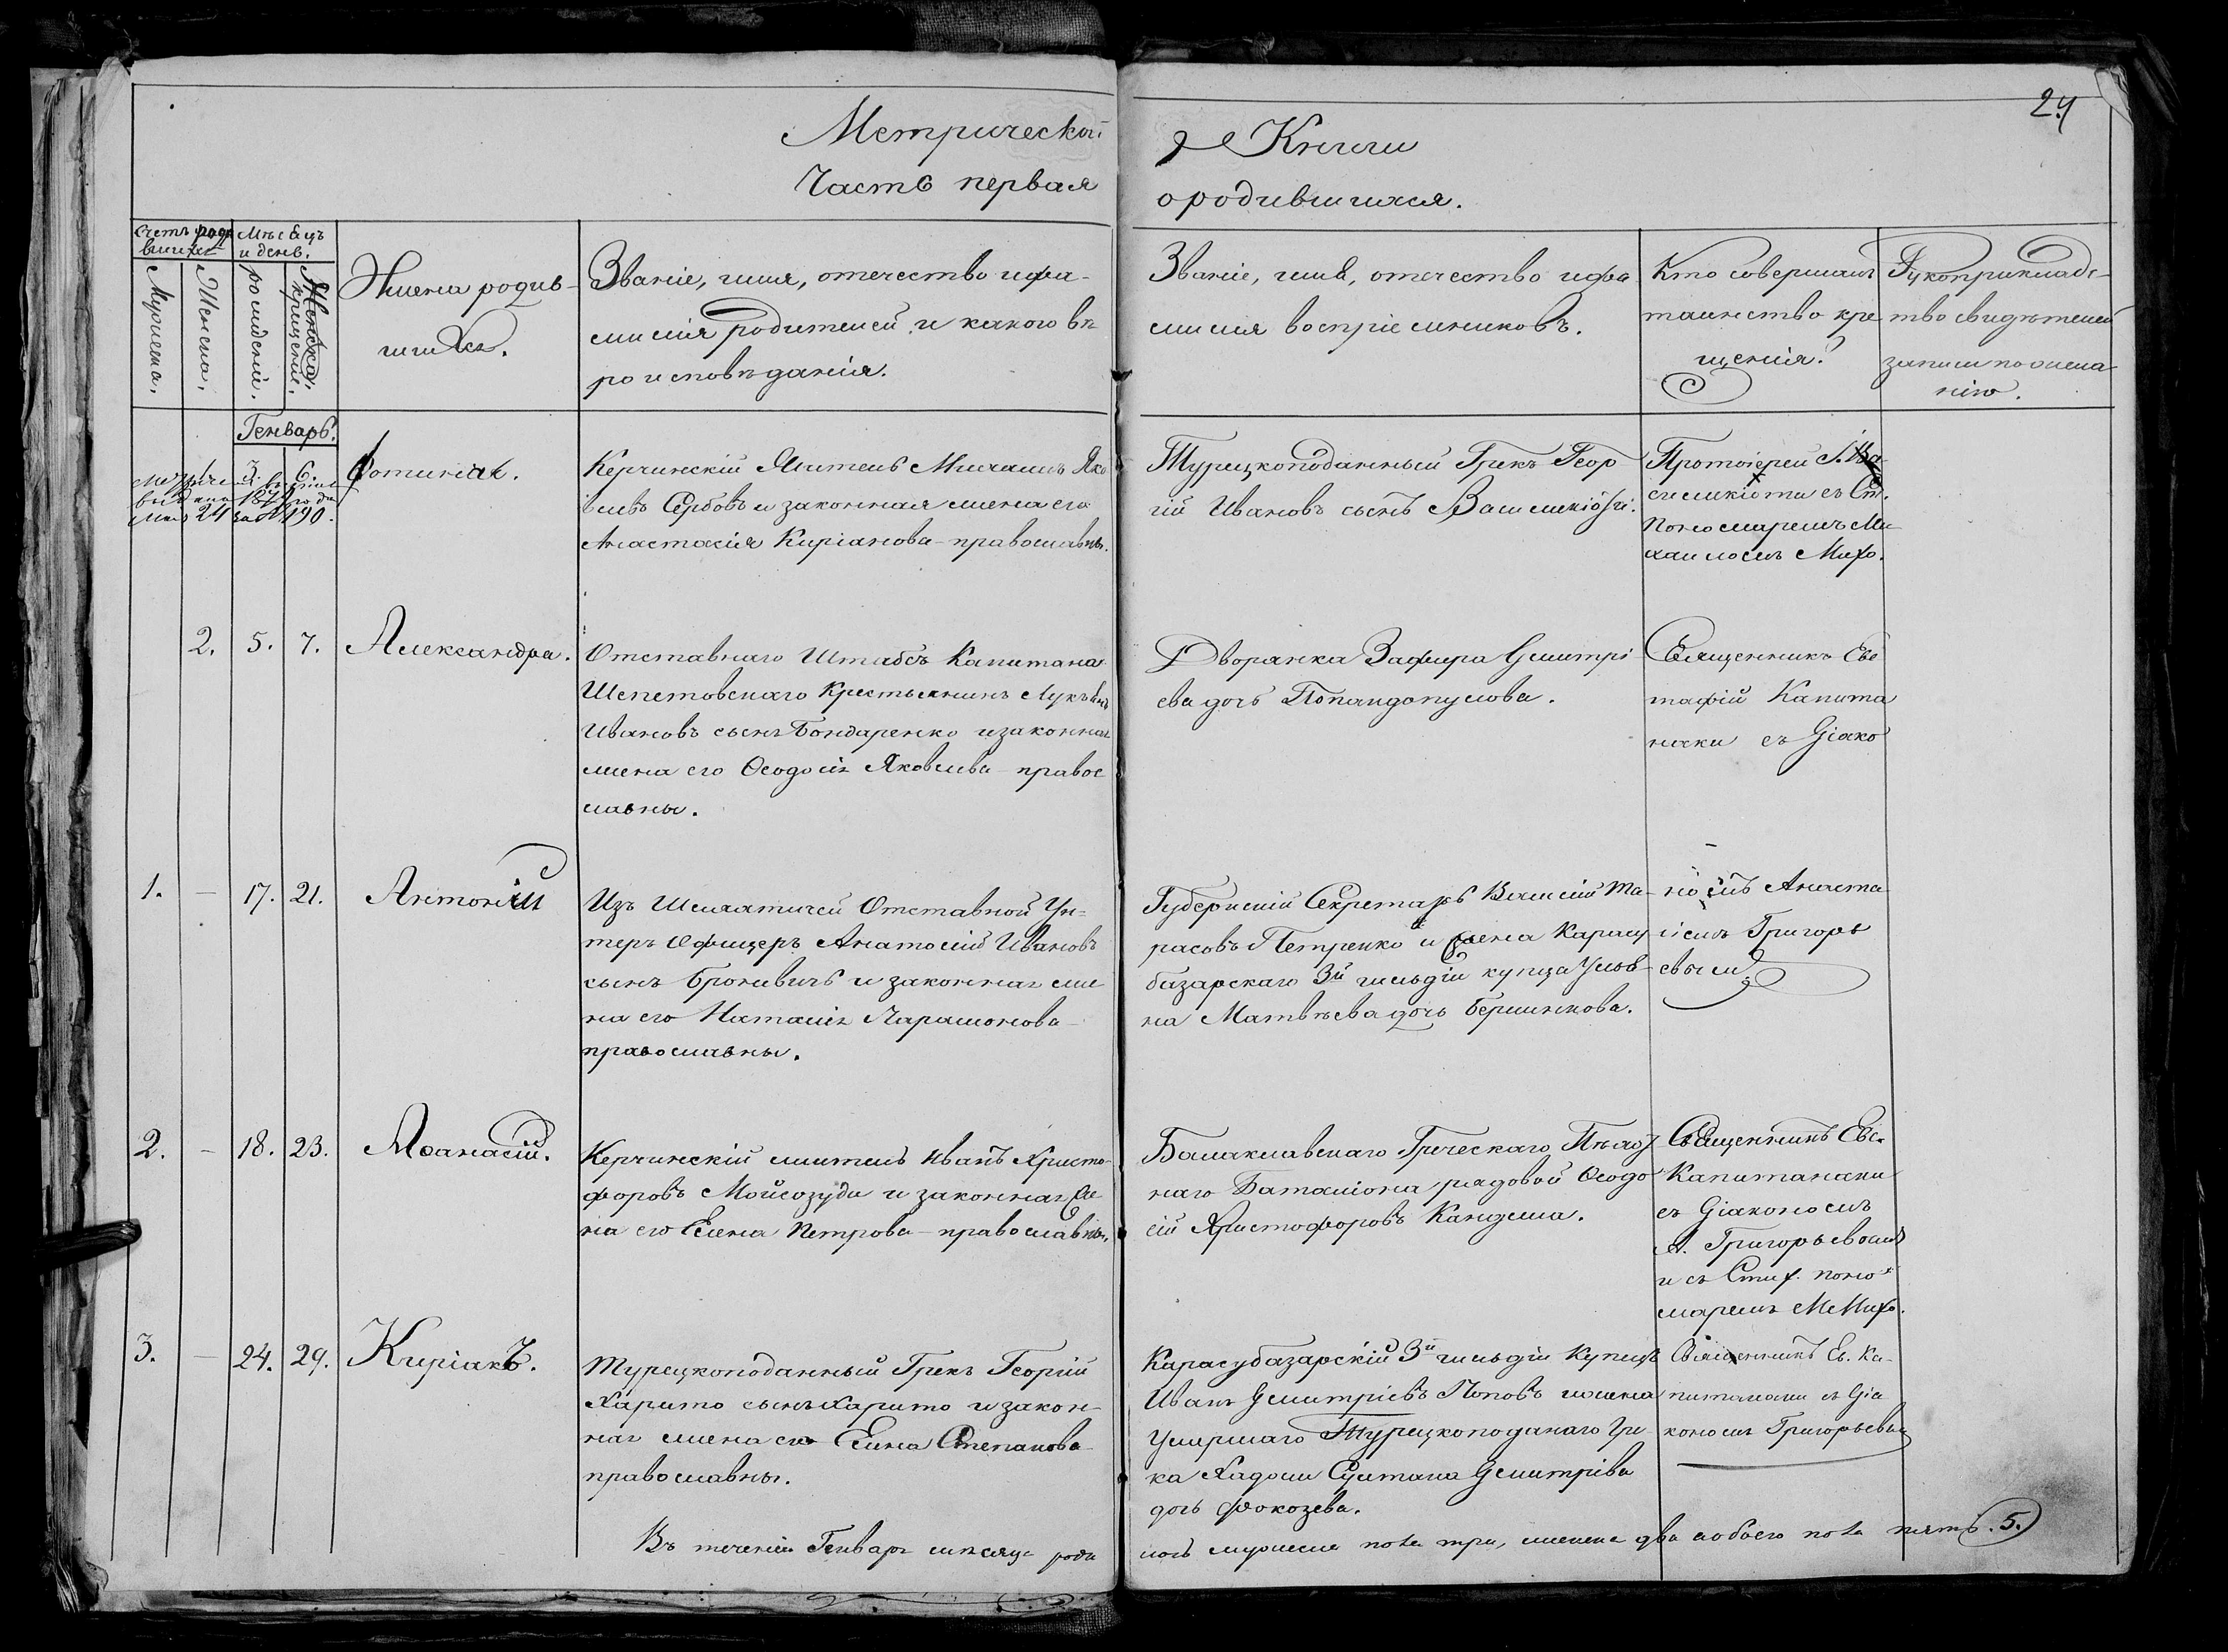 24
Метрической Книги
Часть первая о родившихся.
Счетъ роди
вшихся
Мѣсяцъ
и день.
Мужеска.
Женска.
рожденія.
крещенія.
Имена родив-
шихся.
Званіе, имя, отечество и фа-
милія родителей, и какого вѣ
роисповѣданія.
Званіе, имя, отечество и фа
милія воспріемниковъ.
Кто совершалъ
таинство кре
щенія.
Рукоприкладс-
тво свидѣтелей
записи по жела
нію.
Генварь.
3. 6.
Фотиніа.
Керчинскій Житель Михаилъ Яко
влевъ Сербовъ и законная жена его
Анастасія Киріакова - православны.
Турецкоподанный Грекъ Геор
гій Ивановъ сынъ
Протоіерей
съ Ст.
Пономаремъ Ми
хаиломъ Михо.
2. 5. 7. Александра.
Отставнаго Штабсъ Капитана
Шепетовскаго Крестьянинъ
Ивановъ сынъ Бондаренко и законная
жена его Ѳеодосія Яковлева - правос
лавны.
Дворянка Зафира Дмитрі
ева дочь Попандопулова.
Священникъ Евс
тафій Капита
наки съ Діако
1. - 17. 21. Антоній
Изъ Шляхтичей Отставной Ун-
теръ Офицеръ Анатолій Ивановъ
сынъ Броневичь и законная же
на его Наталія Парамонова
православны.
Губернскій Секретарь Василій Та-
расовъ Петренко и жена Карасу
базарскаго 3й гильдіи купца Улья
на Матвѣева дочь
номъ Анаста
сіемъ Григорь
евымъ
2. - 18. 23. Аѳанасій.
Керчинскій житель Иванъ Христо-
форовъ и законная же
на его Елена Петрова - православны.
Балаклавскаго Греческаго Пѣхот
наго Баталіона рядовой Ѳеодо
сій Христофоровъ
Священникъ Евс.
Капитанаки
съ Діакономъ
А. Григорьевымъ
и съ Стих. поно
маремъ М. Михо.
3. - 24. 29. Киріакъ.
Турецкоподанный Грекъ Георгій
Харито сынъ Харито и закон-
ная жена его Елена Степанова
православны.
Карасубазарскій 3й гильдіи Купецъ
Иванъ Дмитріевъ Поповъ и жена
Умершаго Турецкоподанаго Гре
ка Султана Дмитріева
дочь
Священникъ Ев. Ка-
питанаки съ Діа
кономъ Григорьевы
Въ теченіи Генваря мѣсяца роди
лось мужеска пола три, женска два а обоего пола пять. 5.